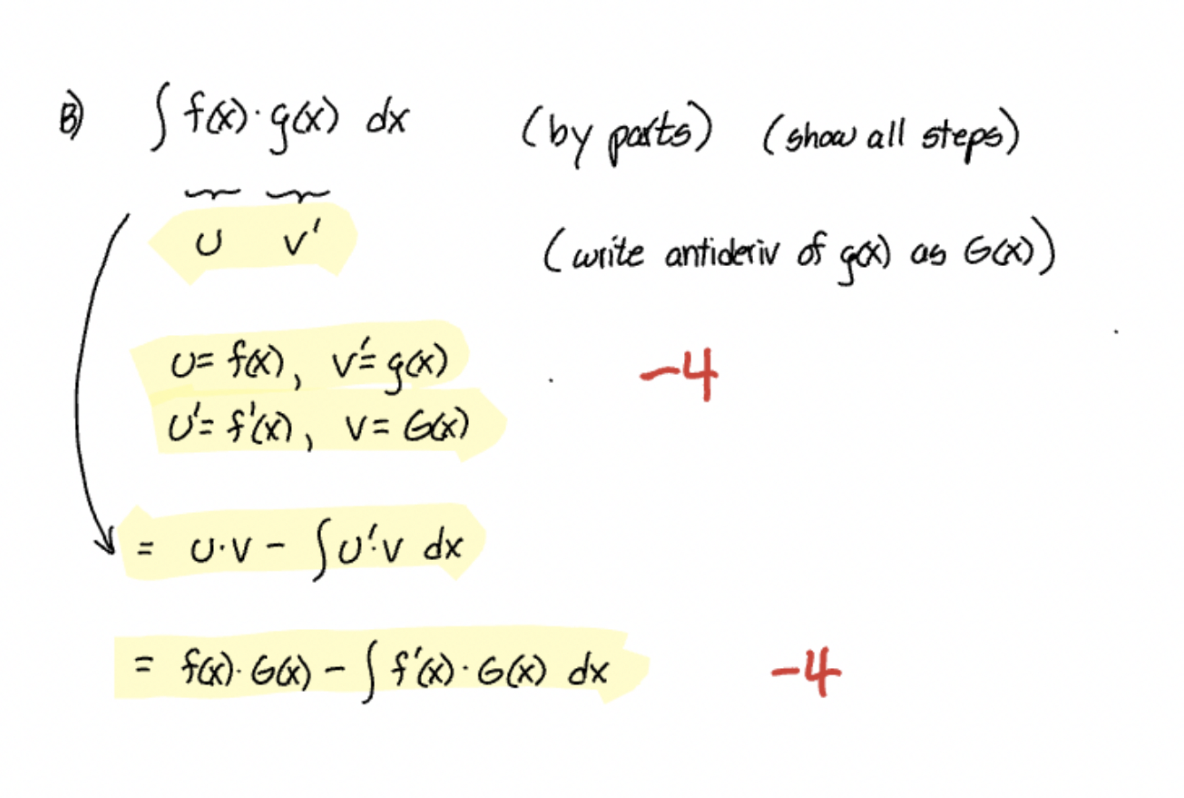 B) ∫ f(x)·g(x) dx (by parts) (show all steps)
U V' (write antideriv of g(x) as G(x))
U= f(x), V'= g(x) -4
U'= f'(x), V= G(x)
= U·V - ∫U'·V dx
= f(x)·G(x) - ∫ f'(x)·G(x) dx -4